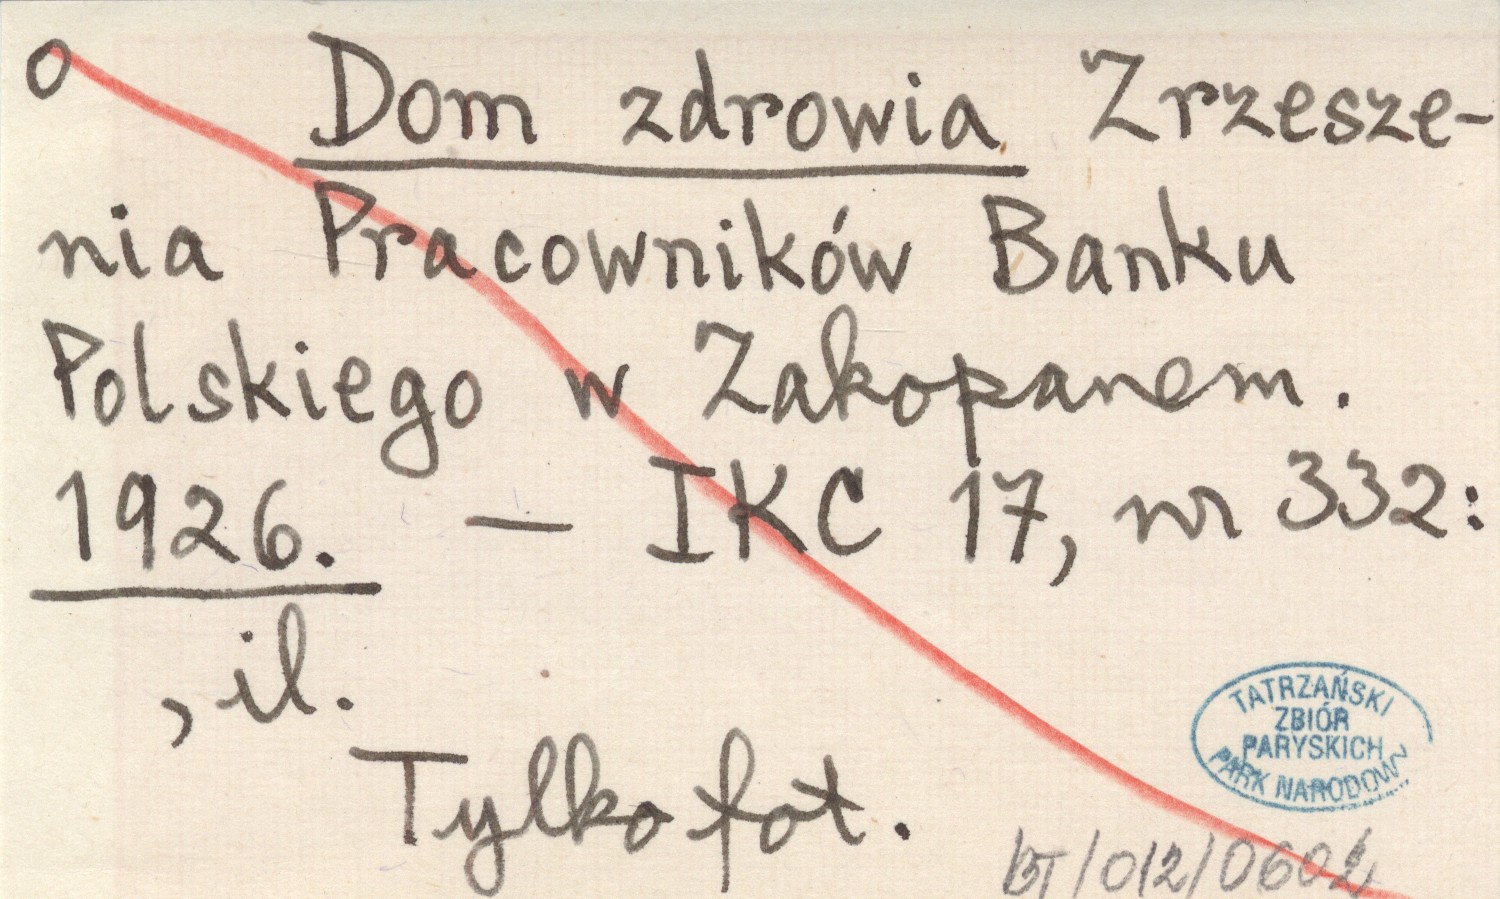 o Dom zdrowia Zrzesze-
nia Pracowników Banku
Polskiego w Zakopanem.
1926. — IKC 17, nr 332:
, il.
Tylko fot.
TATRZAŃSKI
ZBIÓR
PARYSKICH
PARK NARODOWY